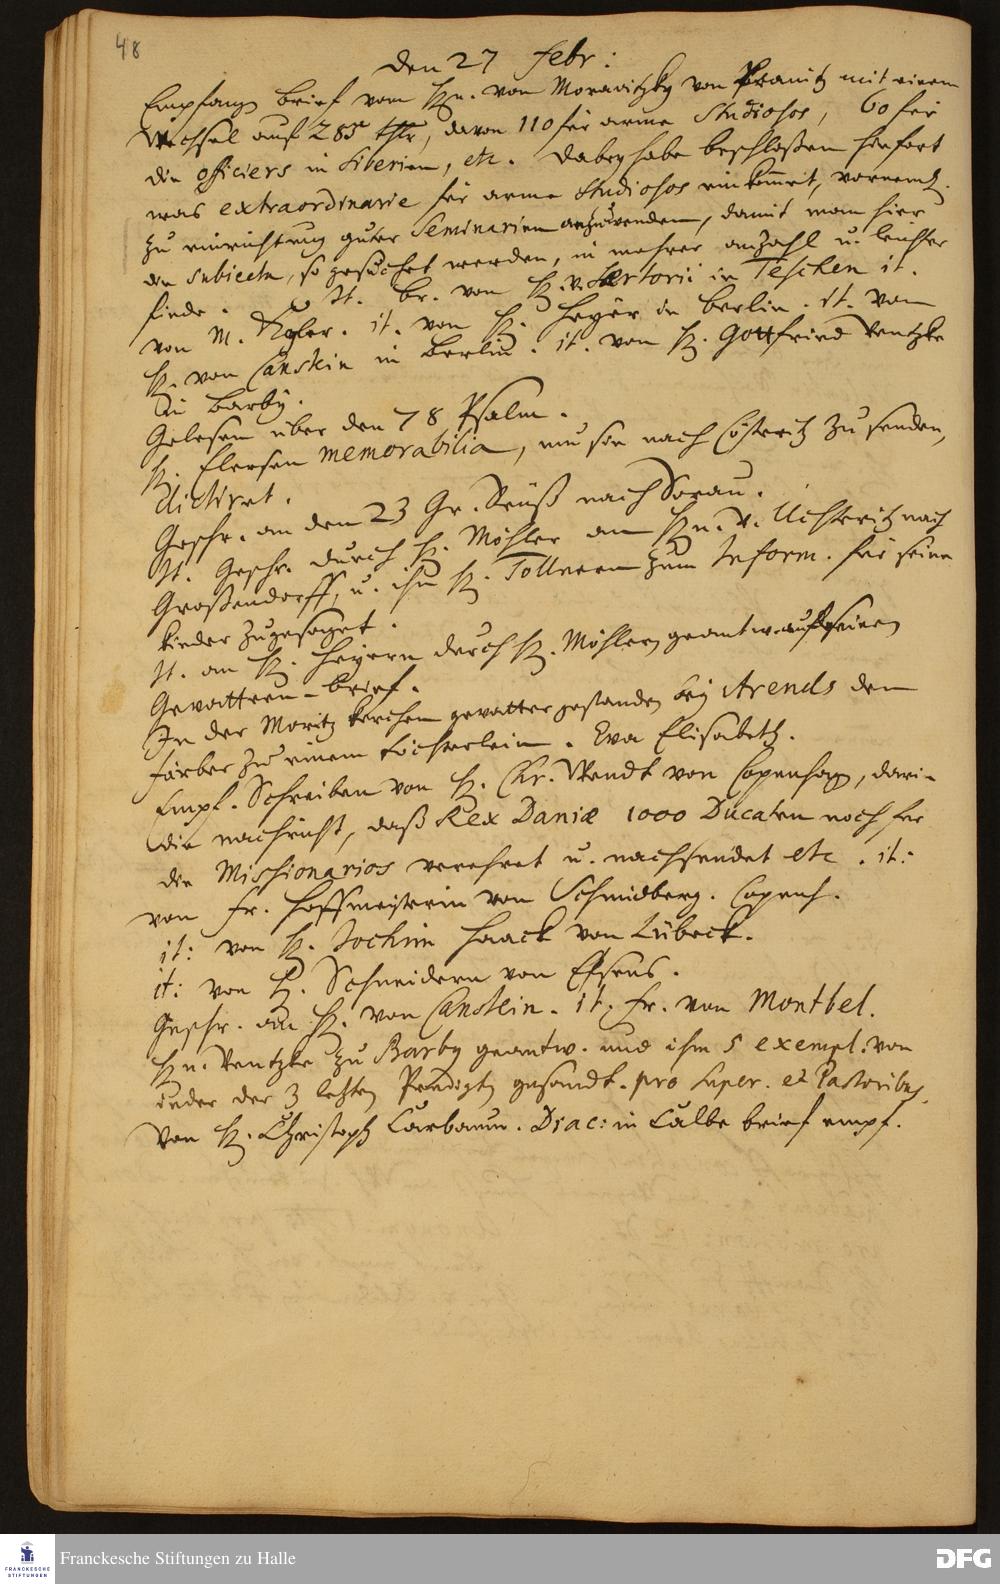 48
den 27 Febr:
Empfang brief vom Hn. von Morawitzky von Pranitz mit einem
Wechsel auf 285 thlr, davon 110 für arme Studiosos, 60 für
die officiers in Siberien, etc. Dabey habe beschloßen hinfort
was extraordinarie für arme Studiosos einkömmt, vornemlich
zu einrichtung guter Seminarien anzuwenden, damit man hier
die Subiecta, so gesuchet werden, in mehrer anzahl u. leichter
finde. It. br. von H. v. Sartorii in Teschen it.
von M. it. von H. Heyer in Berlin. it. vom
H. von Canstein in Berlin. it. von H. Gottfried Ventzke
in Barby.
Gelesen über den 78 Psalm.
H. Elersen memorabilia, um sie nach Cöstritz zu senden,
dictiret.
Geschr. an den 23 Gr. Reuß nach Sorau.
It. Geschr. durch H. Möhler an Hn. v. Uchteritz nach
Großendorff, u. ihm H. Tollneen zum Inform. für seine
kinder zugesaget.
It. an H. Heyern durch H. Möhlern geantw. auf seinen
Gevattern-brief.
In der Moritz kirchen gevatter gestanden bey Arends dem
färber zu einem töchterlein. Eva Elisabeth.
Empf. Schreiben von H. Chr. Wendt von Copenhag, darin
die nachricht, daß Rex Daniæ 1000 Ducaten noch für
die Missionarios verehret u. nachsendet etc. it:
von Fr. Hoffmeisterin von Schmidberg. Copenh.
it: von H. Jochim Haack von Lübeck.
it: von H. Schneidern von Essens.
Geschr. an H. von Canstein. it. Fr. von Montbel.
Hn. Ventzke zu Barby geantw. und ihm 5 exempl. von
ieder der 3 letzten Predigten gesandt. pro Super. et Pastoribus.
Von H. Christoph Carbaum. Diac: in Calbe brief empf.
FRANCKESCHE STIFTUNGEN
Franckesche Stiftungen zu Halle
DFG